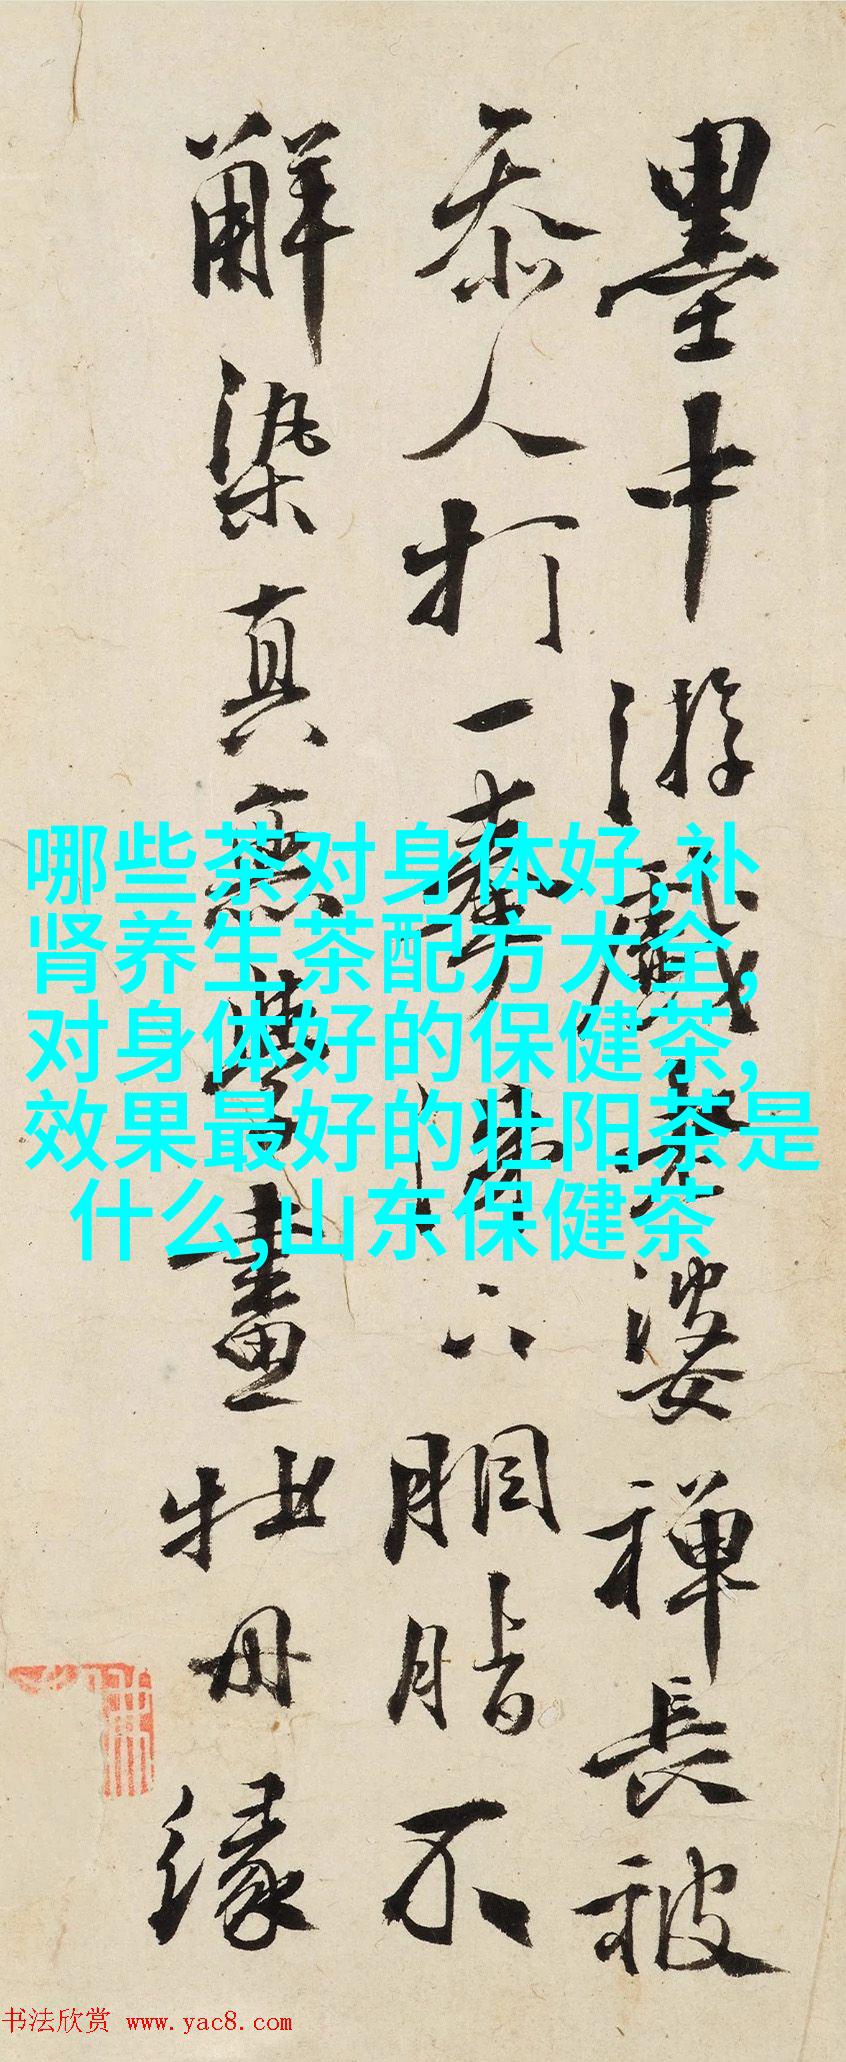 墨中游戲老婆禪長被
参人打一拳
胭脂不
解染真無學畫牡丹緣
哪些茶对身体好,补
肾养生茶配方大全,
对身体好的保健茶,
效果最好的壮阳茶是
什么,山东保健茶
书法欣赏 www.yac8.com